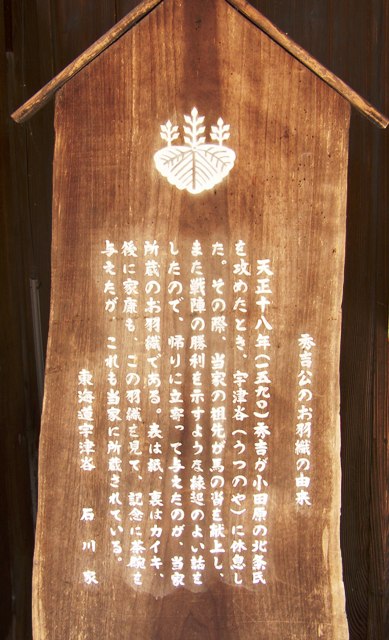 秀吉公のお羽織の由来
天正十八年(一五九〇)秀吉が小田原の北条氏
を攻めたとき、宇津谷(うつのや)に休息し
た。その際、当家の祖先が馬の沓を献上し、
また戦陣の勝利を示すような縁起のよい話を
したので、帰りに立寄って与えたのが、当家
所蔵のお羽織である。表は紙、裏はカイキ、
後に家康も、この羽織を見て、記念に茶碗を
与えたが、これも当家に所蔵されている。
東海道宇津谷 石川家